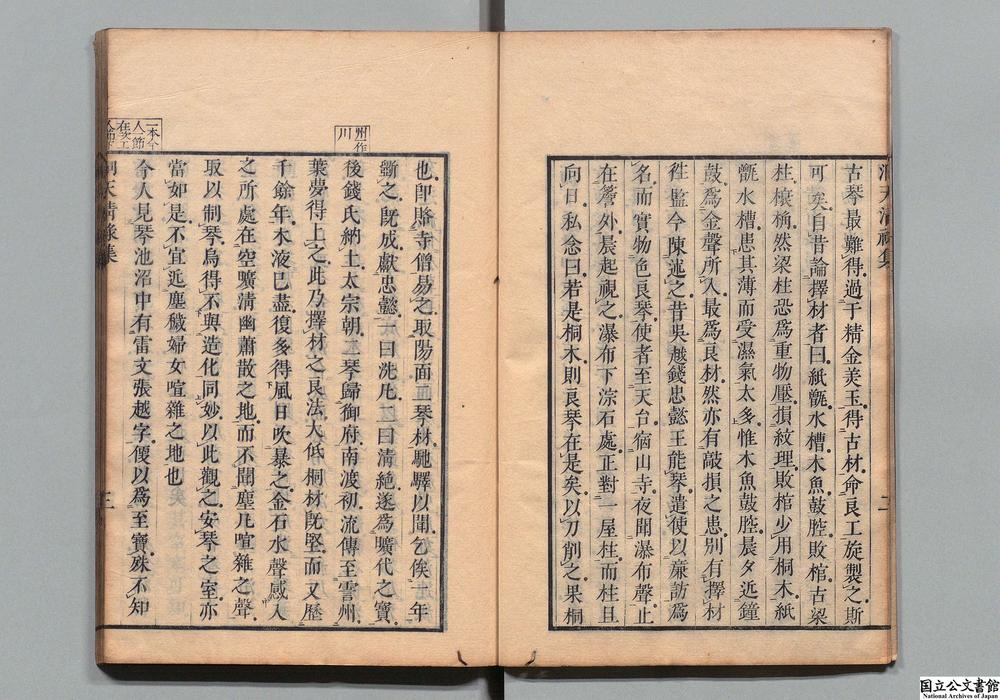 古琴最難得過于精金美玉得古材命良工旋製之斯
可矣自昔論擇材者曰紙甑水槽木魚鼓腔敗棺古梁
柱榱桷然梁柱恐爲重物壓損紋理敗棺少用桐木紙
甑水槽患其薄而受濕氣太多惟木魚鼓腔晨夕近鐘
鼓爲金聲所入最爲良材然亦有敲損之患別有擇材
徃監今陳述之昔吳越錢忠懿王能琴遣使以廉訪爲
名而實物色良琴使者至天台宿山寺夜聞瀑布聲止
在簷外晨起視之瀑布下淙石處正對一屋柱而柱且
向日私念曰若是桐木則良琴在是矣以刀削之果桐
二
州一作
川
也卽賂寺僧易之取陽面二琴材馳驛以聞乞俟一年
斵之旣成獻忠懿一曰洗凡二曰清絶遂爲曠代之寶
後錢氏納土太宗朝二琴歸御府南渡初流傳至霅州
葉夢得上之此乃擇材之良法大低桐材旣堅而又歷
千餘年木液已盡復多得風日吹暴之金石水聲感入
之所處在空曠清幽蕭散之地而不聞塵凡喧雜之聲
取以制琴烏得不與造化同妙以此觀之安琴之室亦
當如是不宜近塵穢婦女喧雜之地也
今人見琴池沼中有雷文張越字便以爲至寶殊不知
三
国立公文書館
National Archives of Japan